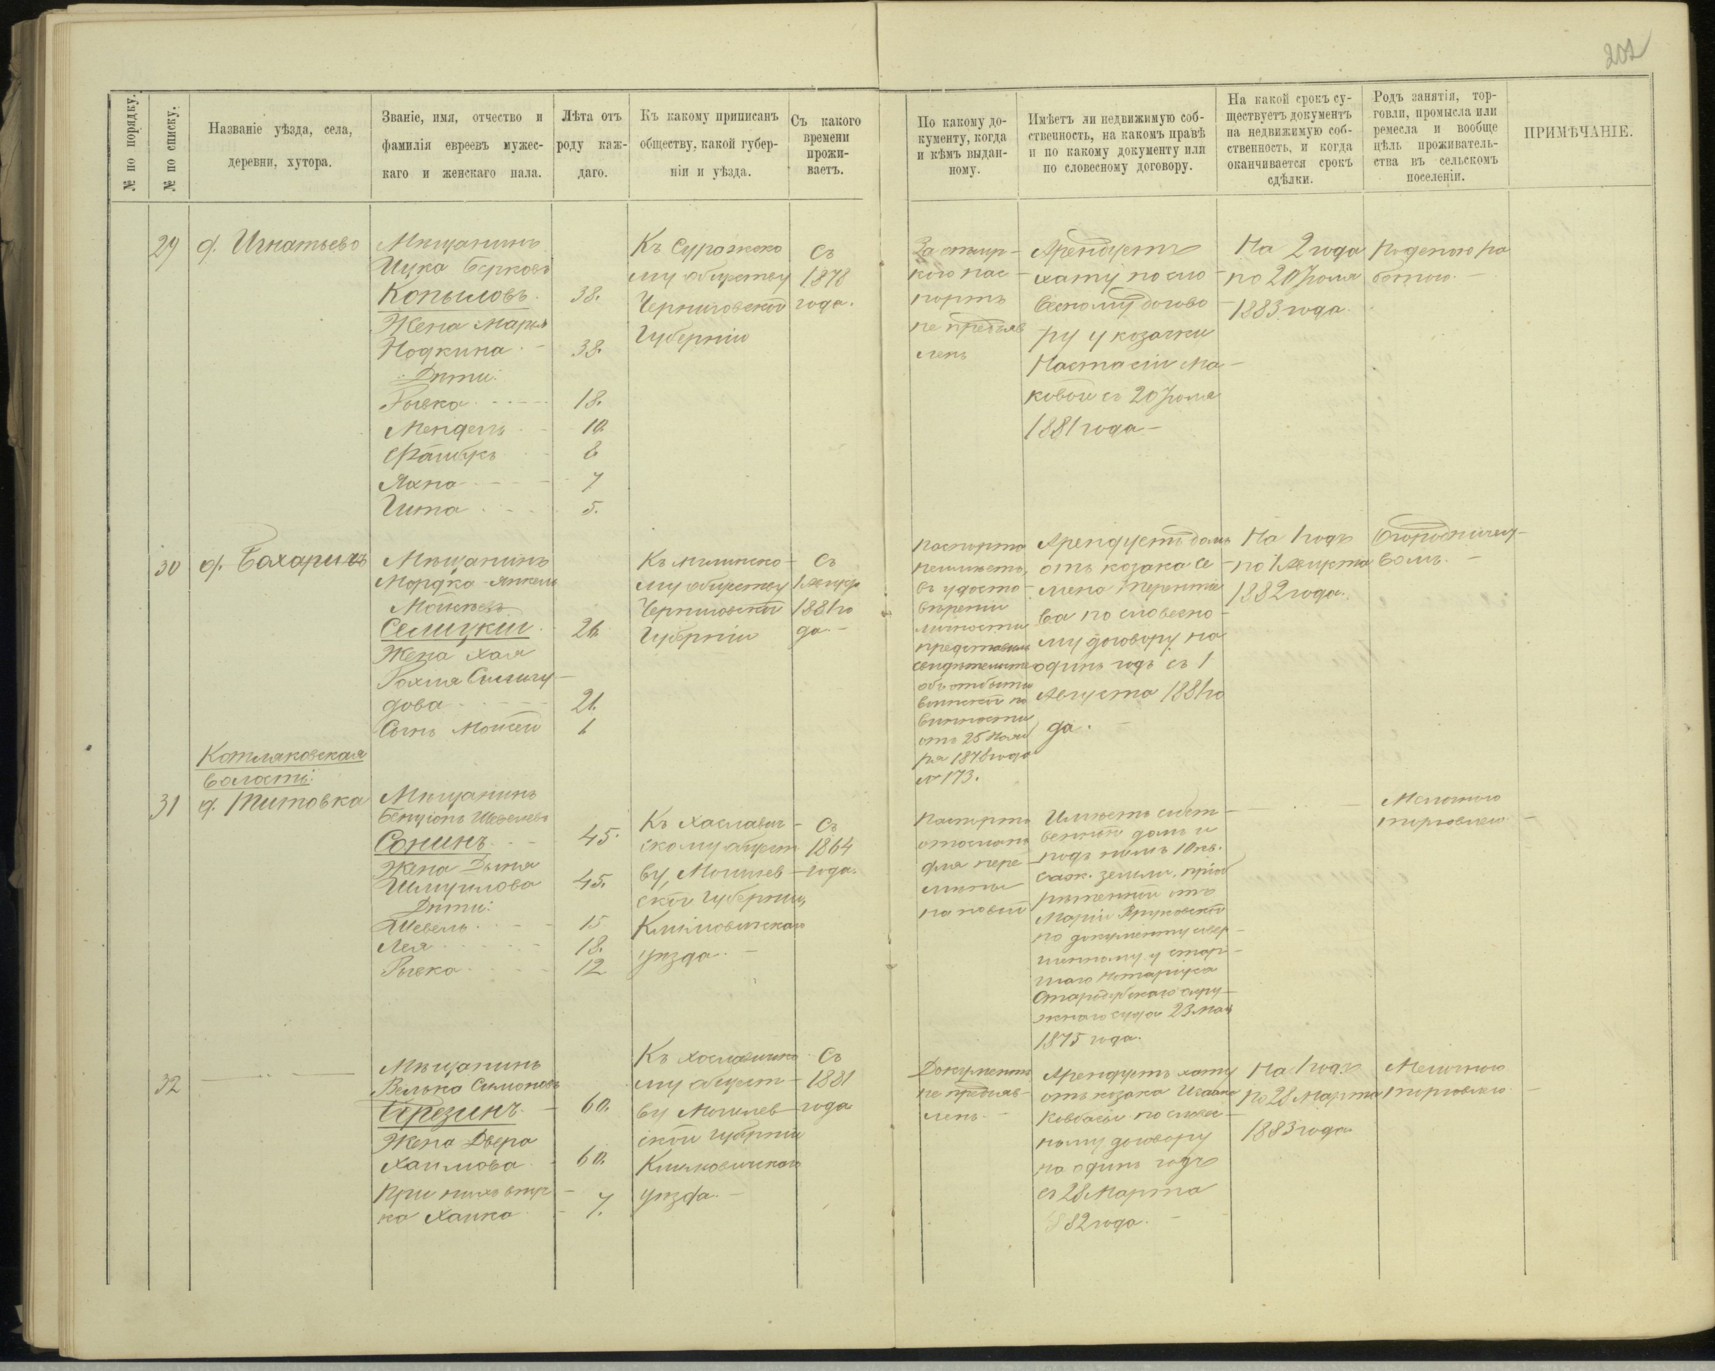 202
№ по порядку.
№ по списку.
Названіе уѣзда, села,
деревни, хутора.
Званіе, имя, отчество и
фамилія евреевъ мужес-
каго и женскаго пала.
Лѣта отъ
роду каж-
даго.
Къ какому приписанъ
обществу, какой губер-
ніи и уѣзда.
Съ какого
времени
прожи-
ваетъ.
По какому до-
кументу, когда
и кѣмъ выдан-
ному.
Имѣетъ ли недвижимую соб-
ственность, на какомъ правѣ
и по какому документу или
по словесному договору.
На какой срокъ су-
ществуетъ документъ
на недвижимую соб-
ственность, и когда
оканчивается срокъ
сдѣлки.
Родъ занятія, тор-
говли, промысла или
ремесла и вообще
цѣль проживатель-
ства въ сельскомъ
поселеніи.
ПРИМѢЧАНІЕ.
29
д. Игнатьево
Мѣщанинъ
Ицка Берковъ
Копыловъ. 38.
Жена Марья
Нодкина 38.
Дѣти:
Рывка 18.
Мендель 10.
8
Яхна 7
Гита 5.
Къ Суражско
му обществу
Черниговской
Губерніи
Съ
1878
года.
пас
портъ
не предъяв
ленъ
Арендуетъ
хату по сло
весному догово
ру у козачки
Настасіи Ма
ковой съ 20 Іюля
1881 года
На 2 года
по 20 Іюля
1883 года.
Поденою ра
ботою.
30
д. Бахаричъ
Мѣщанинъ
Мордка-Янкель
Мойсеевъ
Селицкій 26.
Жена Хая
Рохля
дова 21.
Сынъ Мойсей 1
Къ Мглинско
му обществу
Черниговской
Губерніи
Съ
1 Августа
1881 го
да
Паспорта
не имѣетъ,
въ удосто
вѣреніи
личности
представилъ
свидѣтельство
объ отбытіи
воинской по
винности
отъ 25 Нояб
ря 1878 года
№ 173.
Арендуетъ домъ
отъ козака Се
мена Терентіе
ва по словесно
му договору на
одинъ годъ съ 1
Августа 1881 го
да.
На 1 годъ
по 1 Августа
1882 года.
Огородничест
вомъ.
Котляковская
волость:
31
д. Титовка
Мѣщанинъ
Бенціонъ Шевелевъ
Сонинъ 45.
Жена Дыня
Шмуилова 45.
Дѣти:
Шевель 15
Лея 18.
Рывка 12
Къ Хославич
скому общест
ву, Могилев
ской Губерніи,
Климовичскаго
уѣзда.
Съ
1864
года.
Паспортъ
отосланъ
для пере
мѣны
на новый
Имѣетъ собст
венный домъ и
подъ нимъ 10 кв.
саж. земли, пріоб
рѣтенной отъ
Маріи
по документу совер
шенному у стар
шаго Нотаріуса
Стародубскаго окру
жнаго суда 23 Мая
1875 года.
Мелочною
торговлею
32
Мѣщанинъ
Велька Симоновъ
60.
Жена Двера
Хаимова 60.
При нихъ внуч
ка Ханка 7.
Къ Хославичско
му общест
ву Могилев
ской Губерніи
Климовичскаго
уѣзда.
Съ
1881
года
Документъ
не предъяв
ленъ.
Арендуетъ хату
отъ козака Ивана
Ковбасы по словес
ному договору
на одинъ годъ
съ 28 Марта
1882 года.
На 1 годъ
по 28 Марта
1883 года
Мелочною
торговлею